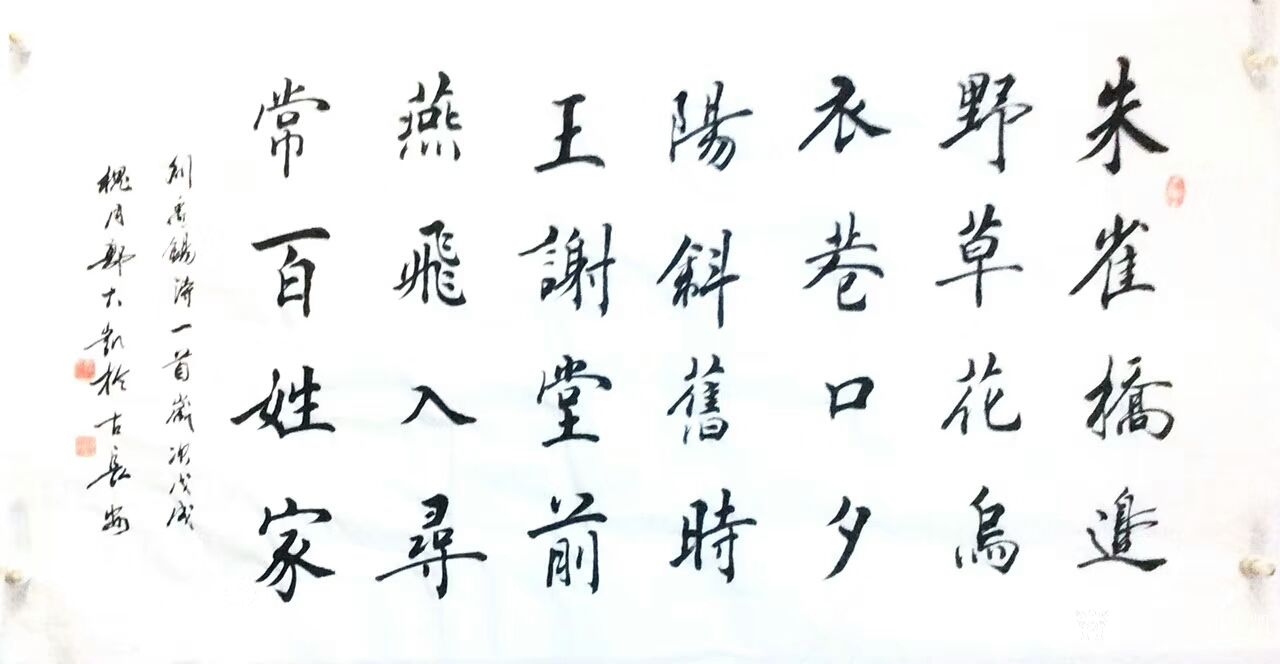 朱雀橋邉
野草花烏
衣巷口夕
陽斜舊時
王謝堂前
燕飛入尋
常百姓家
劉禹錫詩一首歲次戊戌
槐月鄭大凱於古長安